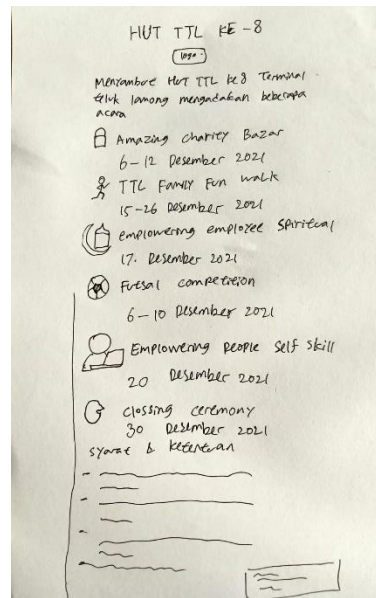 HUT TTL KE-8
logo.
Menyambut HUT TTL ke 8 Terminal
teluk lamong mengadakan beberapa
acara
Amazing charity Bazar
6-12 Desember 2021
TTL Family Fun walk
15-26 Desember 2021
emplowering employee Spiritual
17. Desember 2021
Futsal competition
6-10 Desember 2021
Emplowering people self skill
20 Desember 2021
clossing ceremony
30 Desember 2021
syarat & ketentuan